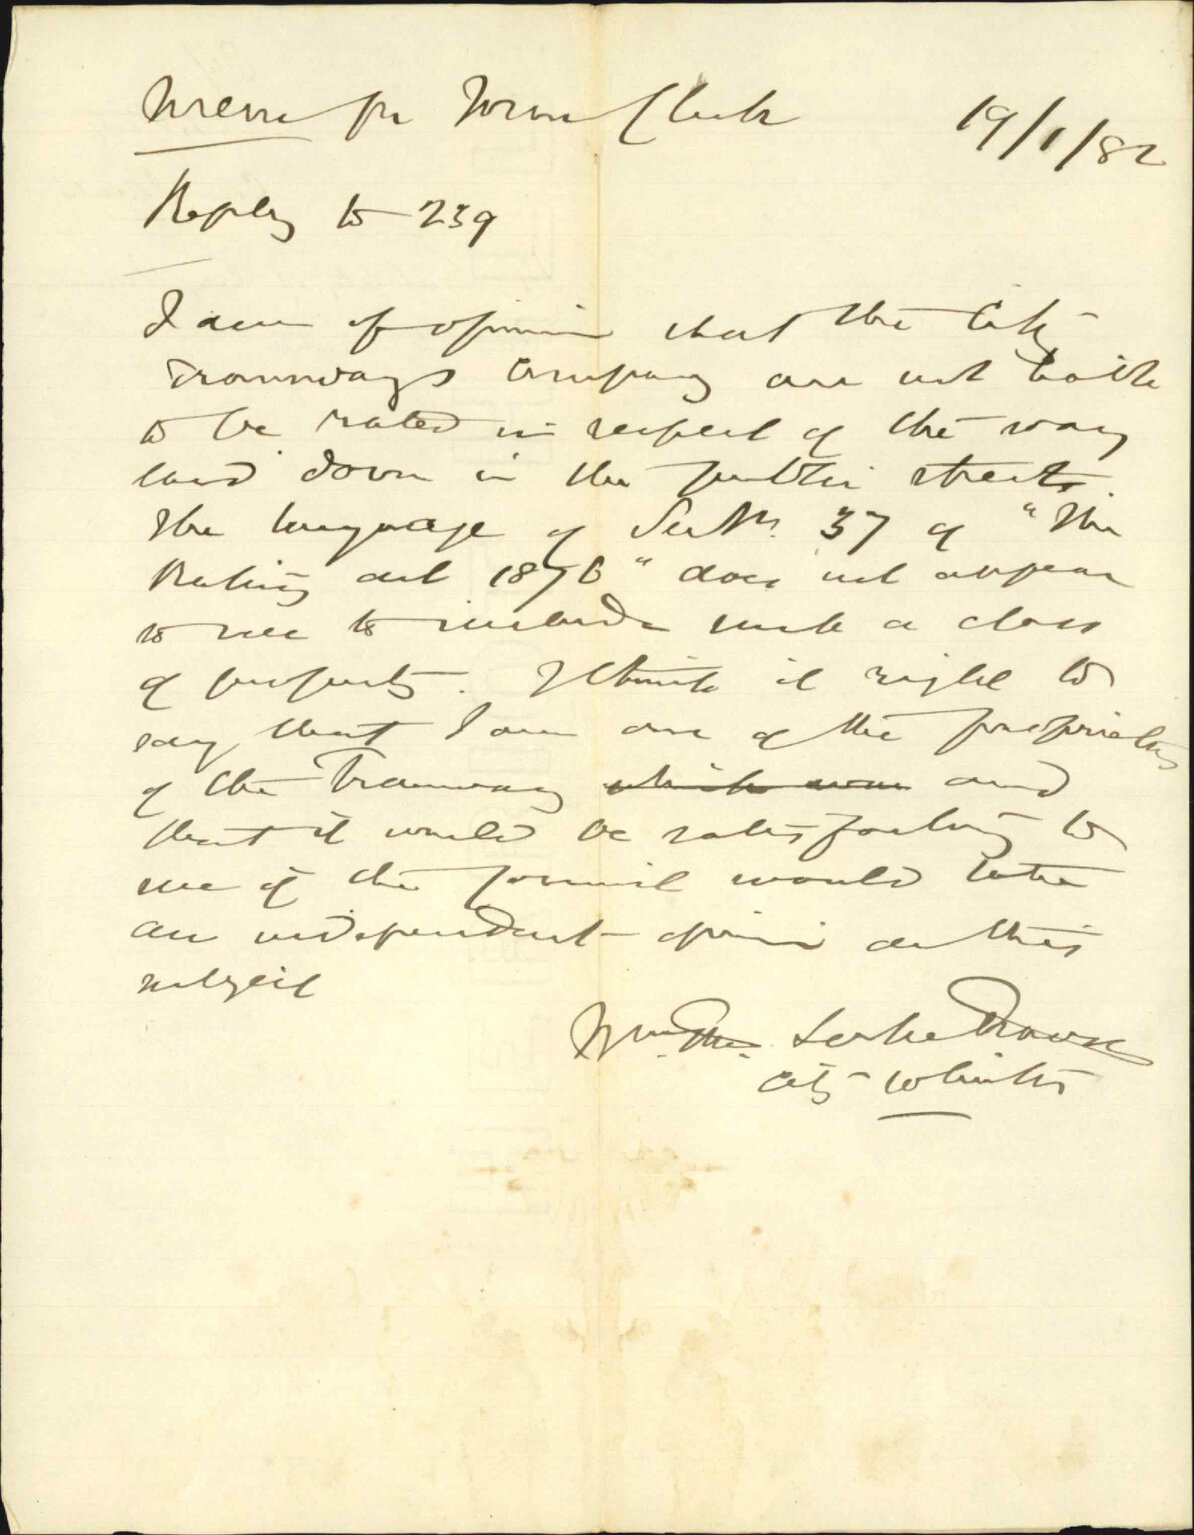 Memo for Town Clerk 19/1/82
Reply to 239
I am of opinion that the City
Tramways Company are not liable
to be rated in respect of the way
laid down in the public streets.
The language of Sectn. 37 of "The
Rating act 1876" does not appear
to me to include such a class
of property. I think it right to
say that I am one of the proprietors
of the Tramway which was and
that it would be satisfactory to
me if the Council would take
an independent opinion on this
subject
Wm. Thos. Locke Travers
City Solicitor